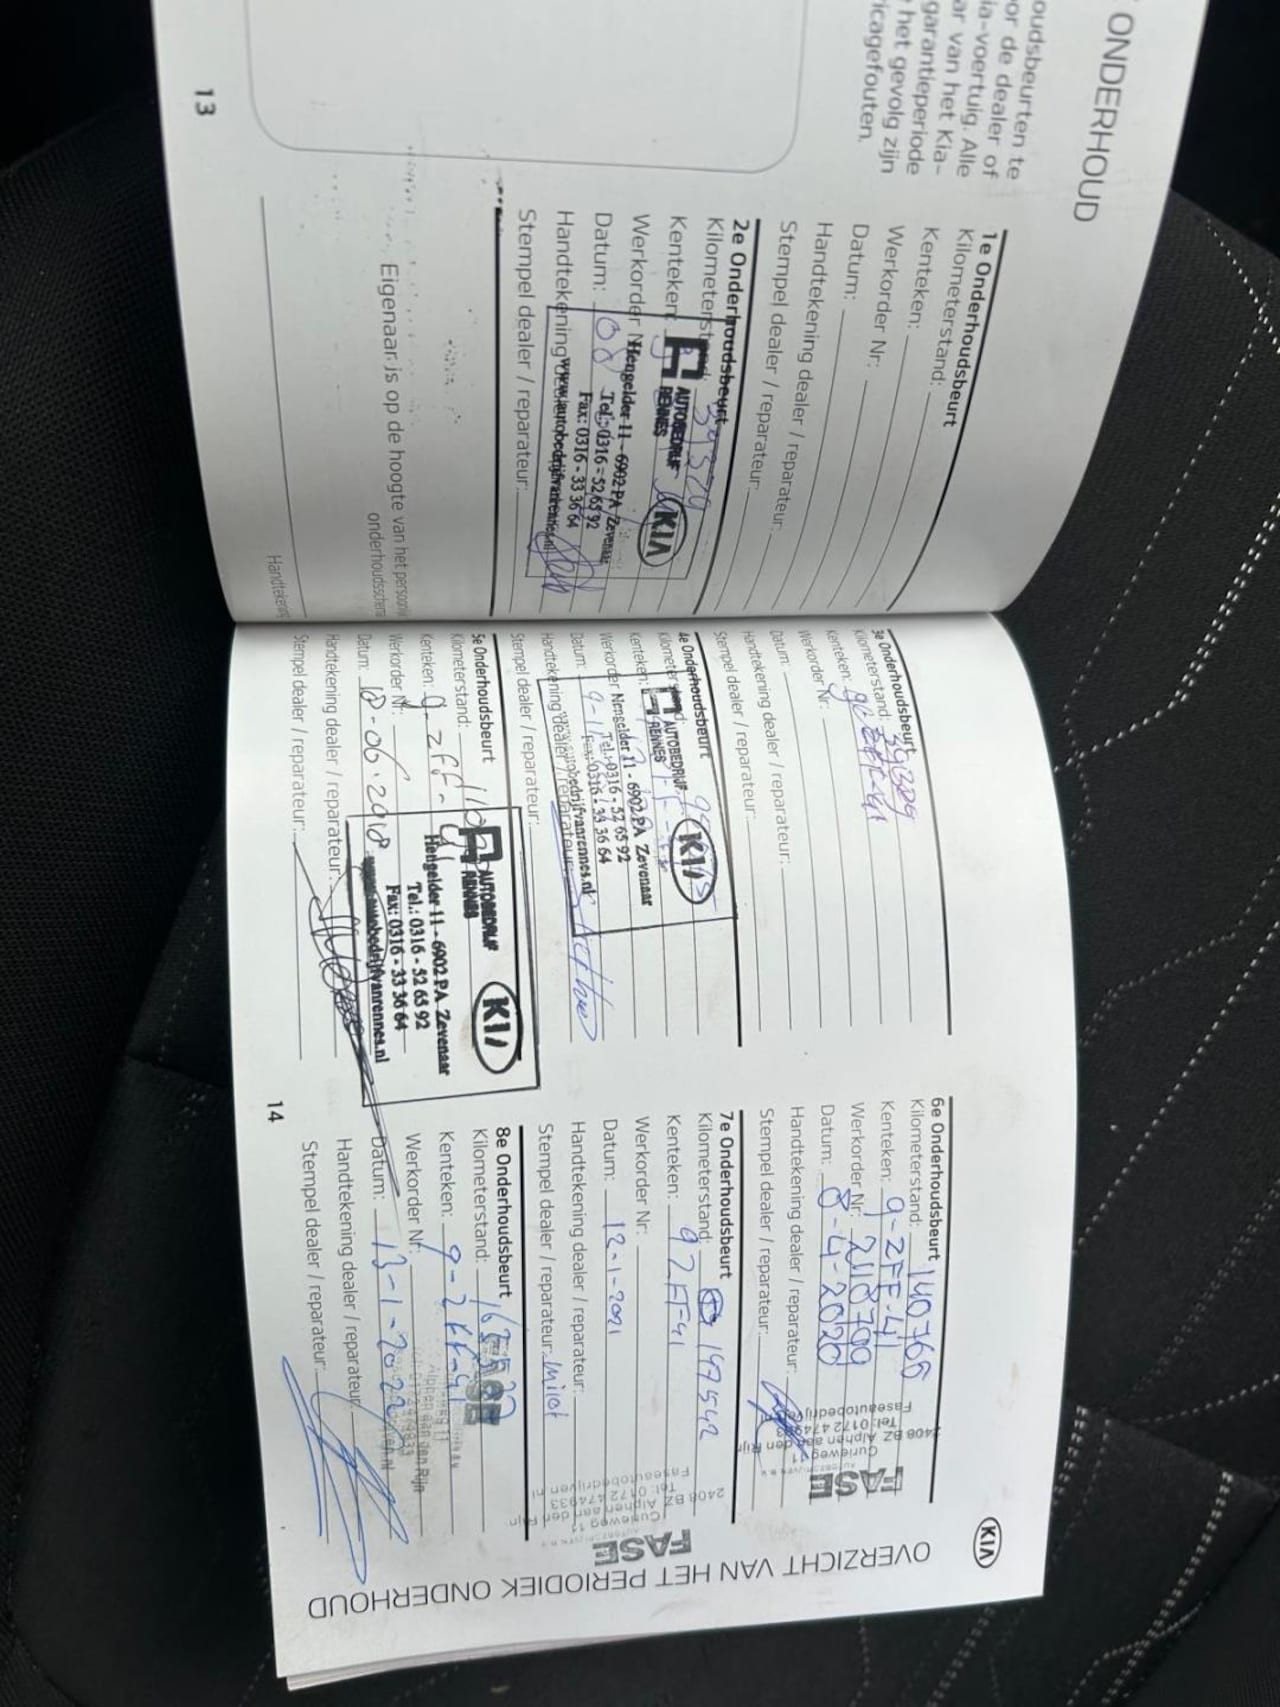 ONDERHOUD
oudsbeurten te
or de dealer of
ia-voertuig. Alle
ar van het Kia-
garantieperiode
het gevolg zijn
icagefouten.
13
1e Onderhoudsbeurt
Kilometerstand:
Kenteken:
Werkorder Nr:
Datum:
Handtekening dealer / reparateur:
Stempel dealer / reparateur:
2e Onderhoudsbeurt
Kilometerstand:
Kenteken:
Werkorder
Datum:
Handtekening
Stempel dealer / reparateur:
AUTOBEDRIJF
RENNES
KIA
Hengelder 11 - 6902 PA Zevenaar
Tel.: 0316 - 52 65 92
Fax: 0316 - 33 36 64
www.autobedrijfvanrennes.nl
Eigenaar is op de hoogte van het
Handtekening
3e Onderhoudsbeurt
Kilometerstand: 39329
Kenteken:
Werkorder Nr:
Datum:
Handtekening dealer / reparateur:
Stempel dealer / reparateur:
4e Onderhoudsbeurt
Kilometerstand:
Kenteken:
Werkorder
Datum:
Handtekening dealer / reparateur:
Stempel dealer / reparateur:
AUTOBEDRIJF
RENNES
KIA
Hengelder 11 - 6902 PA Zevenaar
Tel.: 0316 - 52 65 92
Fax: 0316 - 33 36 64
www.autobedrijfvanrennes.nl
5e Onderhoudsbeurt
Kilometerstand:
Kenteken: 9-ZFF-41
Werkorder Nr:
Datum: 18-06-2018
Handtekening dealer / reparateur:
Stempel dealer / reparateur:
AUTOBEDRIJF
RENNES
KIA
Hengelder 11 - 6902 PA Zevenaar
Tel.: 0316 - 52 65 92
Fax: 0316 - 33 36 64
www.autobedrijfvanrennes.nl
14
KIA
OVERZICHT VAN HET PERIODIEK ONDERHOUD
6e Onderhoudsbeurt
Kilometerstand: 140766
Kenteken: 9-ZFF-41
Werkorder Nr: 2118799
Datum: 8-4-2020
Handtekening dealer / reparateur:
Stempel dealer / reparateur:
FASE
Curieweg 11
2408 BZ Alphen aan den Rijn
Tel: 0172 474933
Faseautobedrijven.nl
7e Onderhoudsbeurt
Kilometerstand: 147542
Kenteken: 9ZFF41
Werkorder Nr:
Datum: 12-1-2021
Handtekening dealer / reparateur:
Stempel dealer / reparateur: Milot
FASE
Curieweg 11
2408 BZ Alphen aan den Rijn
Tel: 0172 474933
Faseautobedrijven.nl
8e Onderhoudsbeurt
Kilometerstand:
Kenteken: 9-ZFF-41
Werkorder Nr:
Datum: 13-1-2022
Handtekening dealer / reparateur:
Stempel dealer / reparateur:
FASE
Alphen aan den Rijn